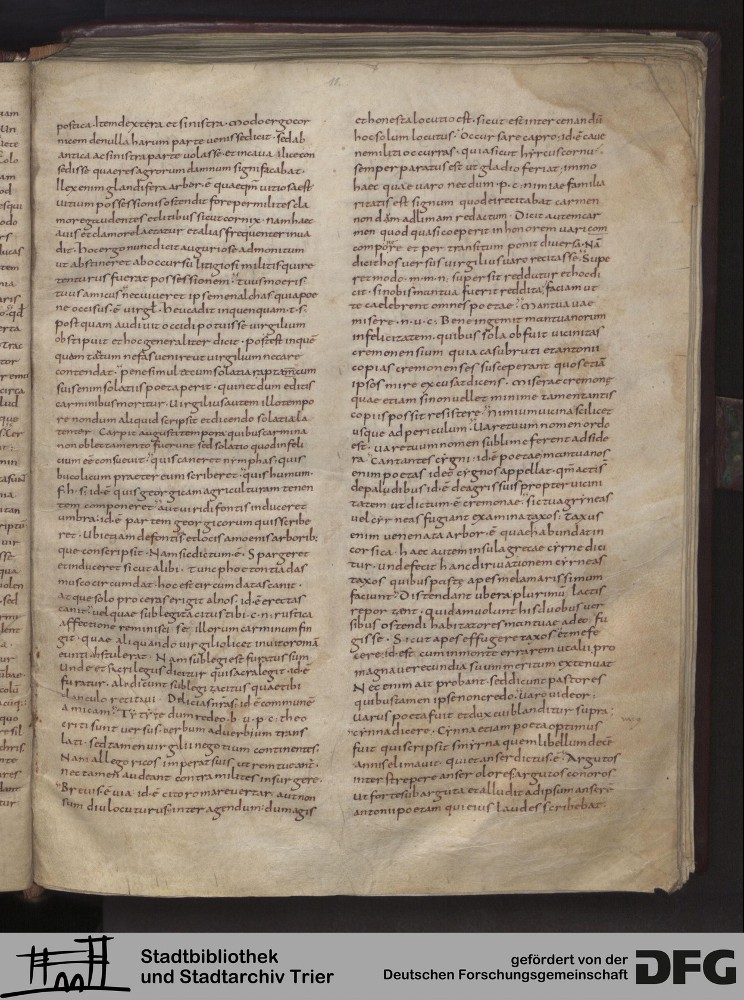 11.
postica. Item dextera et sinistra. modo ergo cor
nicem de nulla harum parte venisse dicit. sed ab
antica ac sinistra parte volasse. et in cava ilice con
sedisse quae res agrorum damnum significabat.
Ilex enim glandifera arbor. ē quaecqm vitiosa est
vitium possessionis ostendit fore per milites cla
more gaudentes editibus sicut cornix. nam haec
avis et clamore laetatur et alias frequenter inva
dit. hoc ergo nunc dicit augurio se admonitum
ut abstineret ab occursu litigiosi militis qui re
tenturus fuerat possessionem. tuus moeris
tuus amicus nec viveret ipse menalchas qui a poe
ne occisus. ē virgl. heu cadit in quenquam. t. s.
post quam audivit occidi potuisse virgilium
obstipuit et hoc generaliter dicit. potest in quē
quam tātum nefas venire ut virgilium necare
contendat. pene simul tecum solatia rapta mecum
suis enim solatiis poeta perit. qui nec dum editis
carminibus moritur. Virgilius autem illo tempo
re nondum aliquid scripsit et dicendo solatia la
tenter. Carpit augusti tempora quibus carmina
non oblectamento fuerunt sed solatio quod infeli
cium eē consuevit. quis caneret nymphas. quis
bucolicum praeter eum scriberet. quis humum.
f. h. s. id. ē quis georgicam agriculturam tenen
tem componeret aut viridi fontis induceret
umbra. id. ē partem georgicorum quis scribe
ret. Ubi etiam de fontis et locis amoenis arborib;
que conscripsit. Nam sic dictum. ē. Spargeret
et induceret sicut alibi. tunc phoetontiadas
musco circumdat hoc est circumdatas canit.
atque solo proceras erigit alnos. id. ē erectas
canit. vel quae sublegi tacitus tibi. c. n. rustica
affectione reminisci se illorum carminum fin
git. quae aliquando virgilio licet invito romā
eunti abstulerat. Nam sublegi est furatus sum
Unde et sacrilegus dicitur qui sacra legit. id. ē
furatur. alii dicunt sublegi tacitus quae tibi
clanculo recitavi. Delicias nrās. id ē communē
amicam. Tytyre dum redeo. b. v. p. c. theo
criti sunt versus. verbum ad verbum trans
lati. sed tamen virgilii negotium continentes.
Nam allegoricos imperat suis ut rem tueant̄.
nec tamen audeant contra milites insurgere.
Brevis. ē via. id. ē cito roma revertar. aut non
sum diu locuturus. inter agendum. dum agis
et honesta locutio est. sicut est inter cenandū
hoc solum locutus. occursare capro. id. ē cave
ne militi occurras. quia sicut hyrcus cornu.
semper paratus est ut gladio feriat. immo
haec quae varo nec dum. p. c. nimiae familia
ritatis est signum quod ei recitabat carmen
non dum ad limam redactum. Dicit autem car
men quod quasi coeperit in honorem vari com
componere et per transitum ponit diversa. Nā
dicit hos versus virgilius varo recitasse. Supe
ret modo. m. m. n. supersit reddatur et hoc di
cit. si nobis mantua fuerit reddita. faciam ut
te caelebrent omnes poetae. mantua vae
misere. n. v. c. Bene ingemit mantuanorum
infelicitatem. quibus sola obfuit vicinitas
cremonensium quia casu bruti et antonii
copias cremonenses susceperant quos etiā
ipsos mire excusat dicens. miserae cremone
quae etiam si non vellet minime tam entantis
copiis possit resistere. nimium vicina scilicet
usque ad periculum. Vare tuum nomen ordo
est. vare tuum nomen sublime ferent ad side
ra. Cantantes cygni. id. ē poetae mantuanos
enim poetas ideo cygnos appellat. qm actis
de paludibus id. ē de agris suis propter vicini
tatem ut dictum. ē cremonae. sic tua gryneas
vel cyrneas fugiant examina taxos. taxus
enim venenata arbor. ē quae habundat in
corsica. haec autem insula grece cyrne dici
tur. unde fecit hanc dirivationem cyrneas
taxos quibus pastae apes mel amarissimum
faciunt. Distendant ubera plurimū lactis
reportent. quidam volunt his duobus ver
sibus ostendi habitatores mantuae adeo. fu
gisse. Sicut apes effugere taxos et mefe
cere. id. est cum in monte errarem vitali pro
magna verecundia suum meritum extenuat
Nec enim ait probant. sed dicunt pastores
quibus tamen ipse non credo. Varo videor.
Varus poeta fuit et dux cui blanditur supra;
cynna dicere. Cynna etiam poeta optimus
fuit qui scripsit smyrna quem libellum decē
annis elimavit. quiet anser dictus. ē. Argutos
inter strepere anser olores. argutos conoros
ut fortes sub arguta et alludit ad ipsum ansero
antonii poetam qui eius laudes scribebat.
Stadtbibliothek
und Stadtarchiv Trier
gefördert von der
Deutschen Forschungsgemeinschaft
DFG